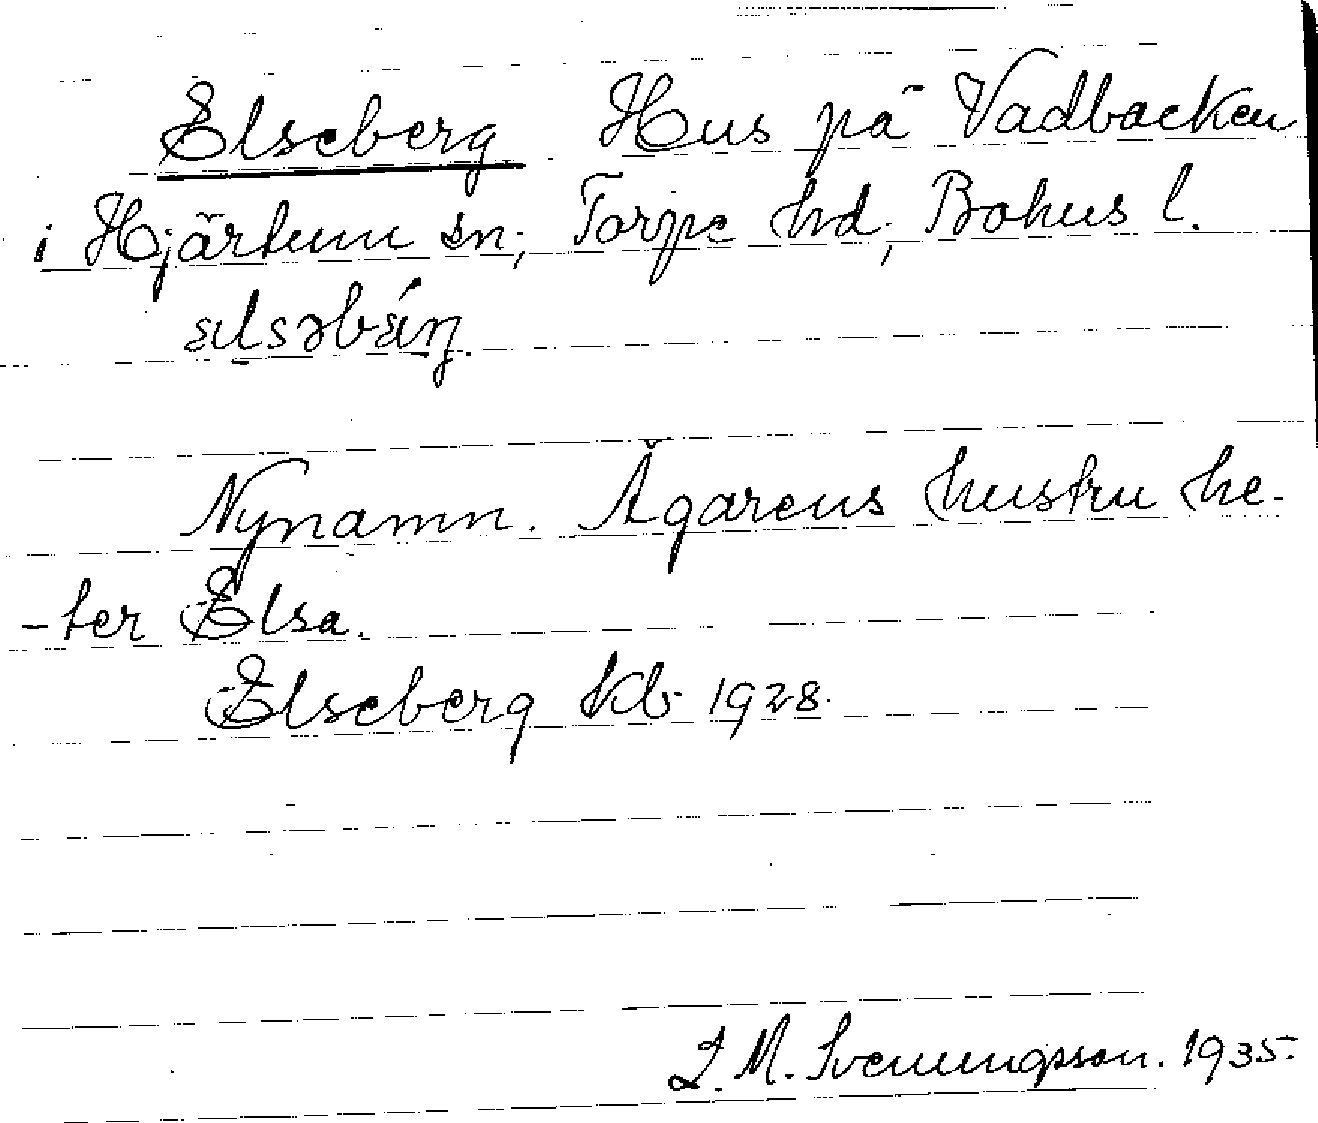 Elseberg Hus på Vadbacken
i Hjärtum sn; Torpe hd; Bohus l.
ælsəbǽrj.
Nynamn. Ägarens hustru he-
-ter Elsa.
Elseberg kb 1928.
L. M. Svenungsson. 1935.